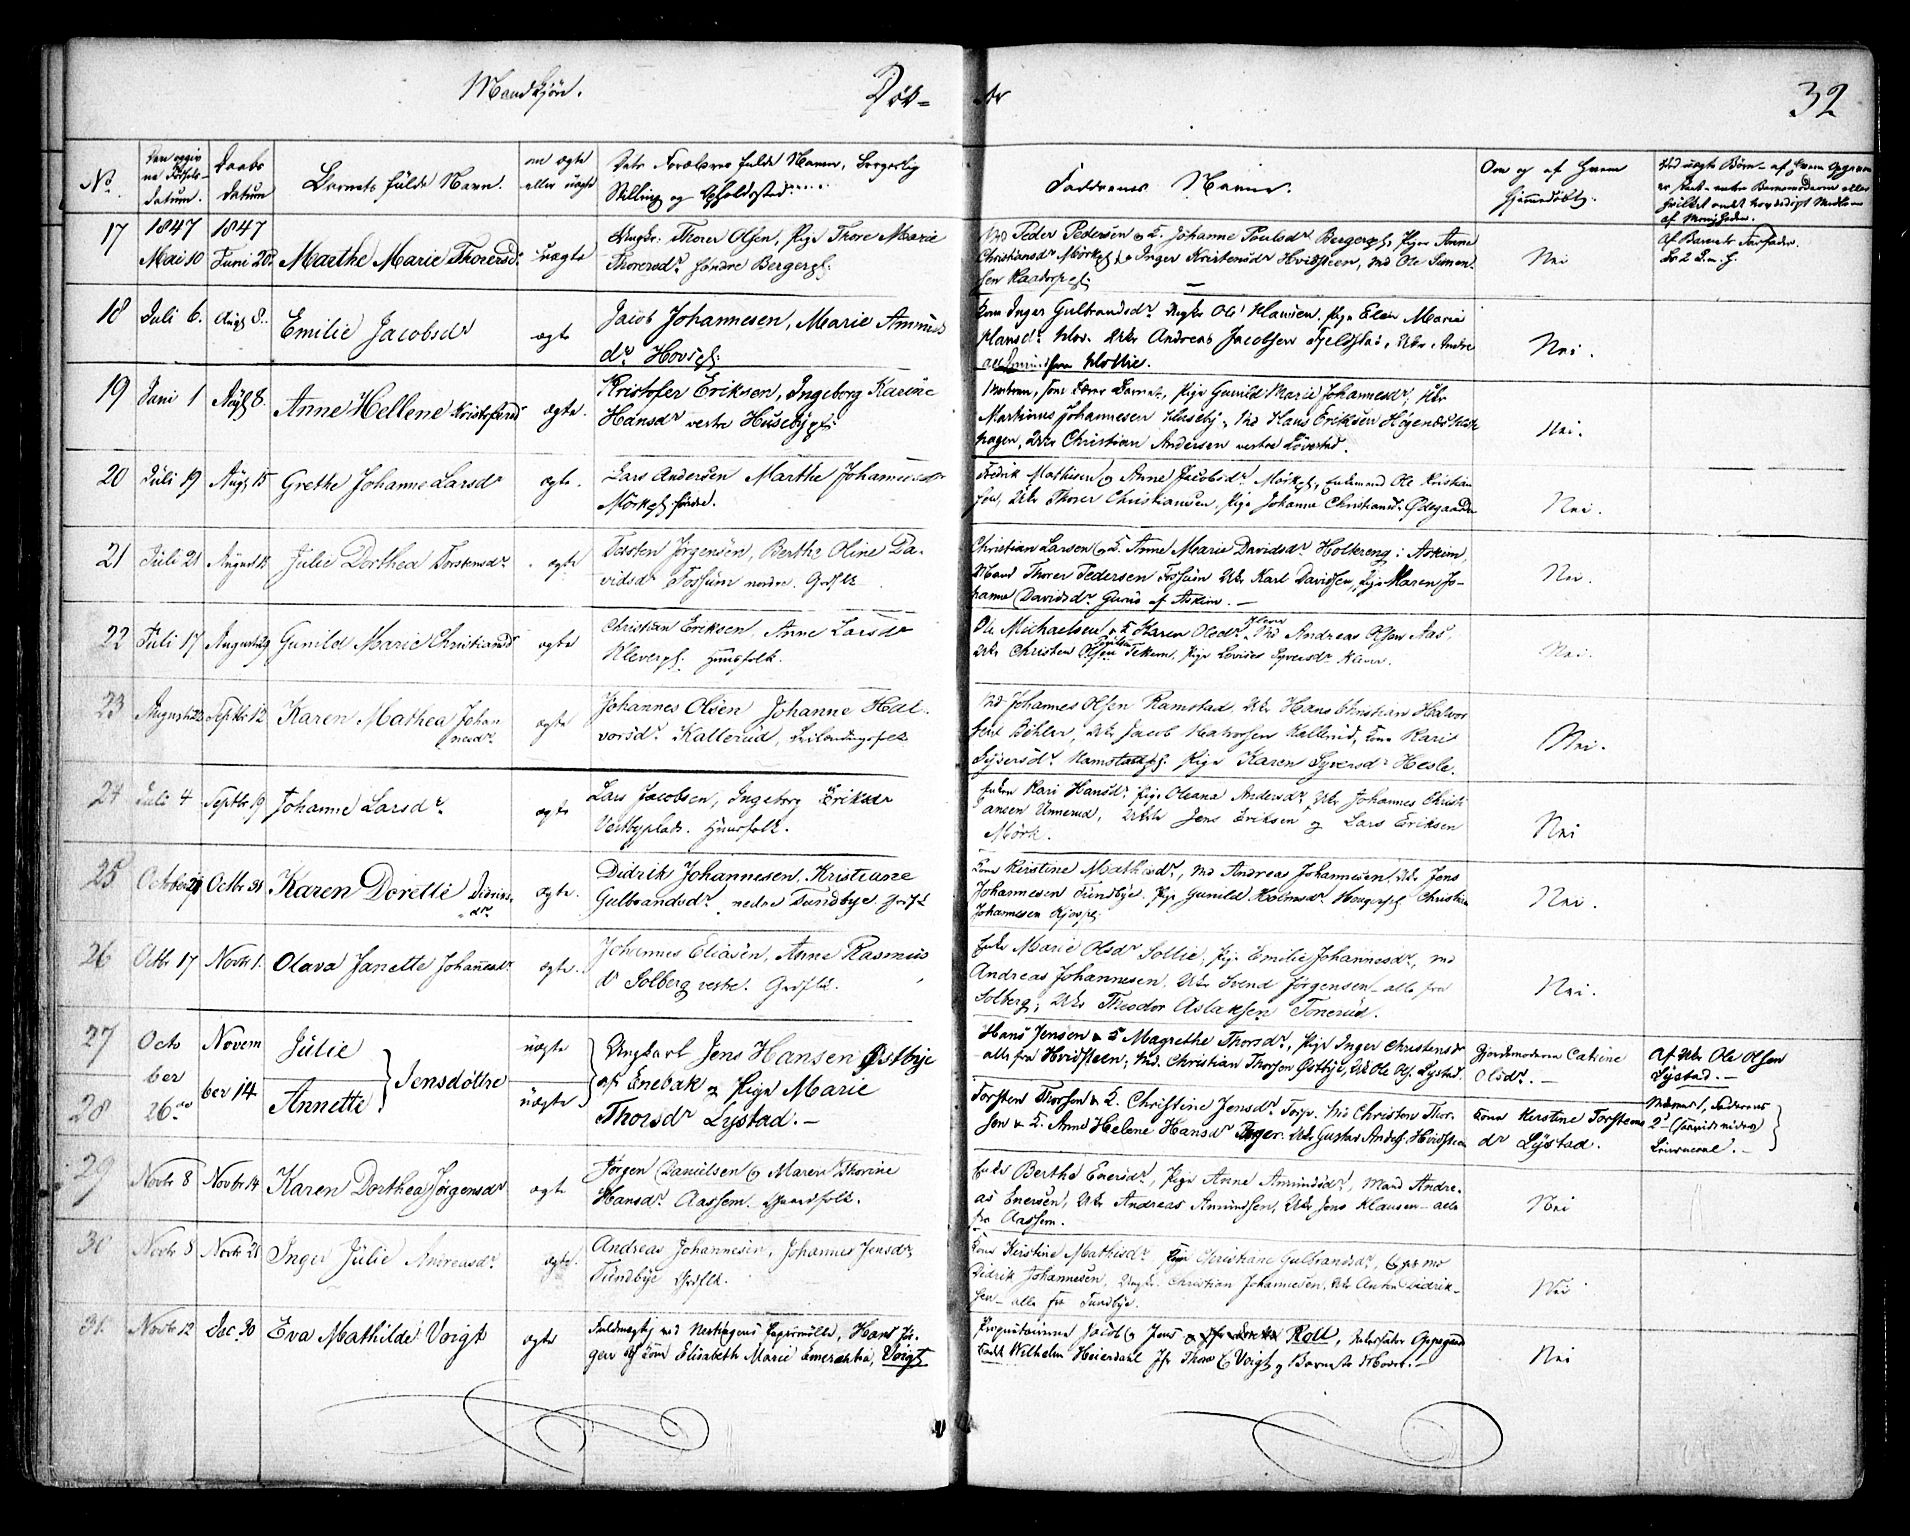 Mandkjön. Døb- te 32
No. Den opgivne Fødsels-datum. Daabs datum Barnets fulde Navn. om ægte eller uægte Dets Forældres fulde Navne, Borgerlig Stilling og Opholdssted Faddernes Navne. Om og af hvem hjemmedøbt.
17 1847 Mai 10 1847 Juni 20 Marthe Marie Thorersdr uægte Ungkr. Thorer Olsen, Pige Thore Marie
Thorersdr. søndre Bergerpl.
Md Peder Pedersen & K. Johanne Poulsdr Bergerpl, Pigen Anne
Christiansdr Mörkepl, Inger Kristensdr Hvidsteen, Md Ole Simen-
sen
Nei af Barnets Farfader.
18 Juli 6. Augt 8. Emilie Jacobsdr ægte Jacob Johannesen, Marie Amunds
dr. Hovspl.
Kone Inger Gulbrandsdr. Ungkr Ole Hansen, Pige Elen Marie
Hansdr. Ukr Andreas Jacobsen Fjeldstad, Ukr. Andre
Nei.
19 Juni 1 Augt 8. Anne Hellene Kristofersdr ægte. Kristofer Eriksen, Ingeborg Karine
Hansdr vestre Husebypl.
Moderen, som bær Barnet, Pige Gunild Marie Johannesdr, Ukr
Martinus Johannesen Huseby, Md Hans Eriksen
hagen, Ukr Christian Andersen vestre Lövestad.
Nei.
20 Juli 19 Augt 15 Grethe Johanne Larsdr ægte. Lars Andersen Marthe Johannesdr
Mörkepl søndre.
Fredrik Mathisen & Anne Jacobsdr Mörkepl, Enkemand Ole Kristian
sen, Ukr Thorer Christiansen, Pige Johanne Christiansdr Ødegaarden
Nei.
21 Juli 21 August 15 Julie Dorthea Torstensdr. ægte Torsten Jörgensen, Berthe Oline Da-
vidsdr Fossum nordre. Grdflk
Christian Larsen & K. Anne Marie Davidsdr Holtereng i Askim,
Mand Thorer Pedersen Fossum Ukr Karl Davidsen, Pige Maren Jo-
hanne Davidsdr. Gurud af Askim.
Nei.
22 Juli 17 August 29 Gunild Marie Christiansdr ægte Christian Eriksen, Anne Larsdr
Kleverpl. Huusfolk.
Ole Michaelsen & K Karen Olsdr. Klever Md Andreas Olsen Aas,
Ukr Christen Olsen Tekum, Pige Lovise Syversdr Klever.
Nei.
23 August 22 Septbr 12 Karen Mathea Johan
nesdr.
ægte Johannes Olsen Johanne Hal-
vorsdr. Kallerud, Leilændingsfolk
Md Johannes Olsen Ramstad, Ukr Hans Christian Halvor
sen Böhler, Ukr Jacob Halvorsen Kallerud, Kone Kari
Syversdr. Ramstadpl. Pige Karen Syversdr Hesle.
Nei.
24 Juli 4 Septbr 19 Johanne Larsdr. ægte Lars Jacobsen, Ingeborg Eriksdr
Vestbyplads. Huusfolk.
Enken Kari Hansdr. Pige Oleana Andersdr, Ukr Johannes Christi
ansen Unnerud, Ukr Jens Eriksen og Lars Eriksen
Mörk.
Nei
25 October Octbr 31 Karen Dorette Didriks-
dr.
ægte. Didrik Johannesen, Kristiane
Gulbrandsdr. nedre Tundbye Grdflk
Kone Kerstine Mathisdr, Md Andreas Johannesen, Ukr Jens
Johannesen Tundbye. Pige Gunild Holmsdr. Haugerpl. Christian
Johannesen
Nei.
26 Octbr 17 Novbr 1. Olava Janette Johannesdr. ægte. Johannes Eliasen, Anne Rasmus
dr Solberg vestre. Grdflk.
Enke Marie Olsdr Sollie, Pige Emilie Johannesdr, Md
Andreas Johannesen, Ukr Svend Jörgensen - alle fra
Solberg; Ukr Theodor Aslaksen Tonerud.
Nei.
27 Octo
ber
26
Novem
ber 14
Julie
Jensdöttre
uægte Ungkarl Jens Hansen Østbye
af Enebak og Pige Marie
Thorsdr Lystad. -
Hans Jensen & K Magrethe Thorsdr, Pige Inger Christensdr
alle fra Hvidsteen; Md. Christian Thorsen Østbye, Ukr Ole Ols. Lystad
Gjordemoderen Catrine
Olsdr. - Af Ukr Ole Olsen
Lystad. -
28 Annette uægte Torsten Thorsen & K. Christine Jensdr. Md Christen Thor-
sen & K. Anne Helene Hansdr Ukr Gustav Anders. Hvidsteen
Kone Kerstine Torstens
dr Lystad.
29 Novbr 8 Novbr 14 Karen Dorthea Jörgensdr ægte Jörgen Danielsen & Maren Thorine
Hansdr. Aassem. Gaardfolk.
Enke Berthe Enersdr, Pige Anne Amundsdr, Mand Andre-
as Enersen, Ukr Andreas Amundsen, Ukr Jens Klausen - alle
fra Aassem.
Nei
30 Novbr 8 Novbr 21 Inger Julie Andreasdr. ægte. Andreas Johannesen, Johanne Jensdr
Tundbye Grdflk.
Kone Kerstine Mathisdr. Pige Christiane Gulbrandsdr, Md
Didrik Johannesen, Ungkr. Christian Johannesen, Ukr Anton Didrik-
sen - alle fra Tundbye.
Nei
31. Novbr 12 Dec. 30 Eva Mathilde Voigt ægte Fuldmægtig ved Papirmölle, Hans Jör-
gen og Kone Elisabeth Marie Emerentia, Voigt
Proprietairerne Jacob & Jens Roll,
Wilhelm Heierdahl Jfr Thora C Voigt og Barnets Moder. -
Nei